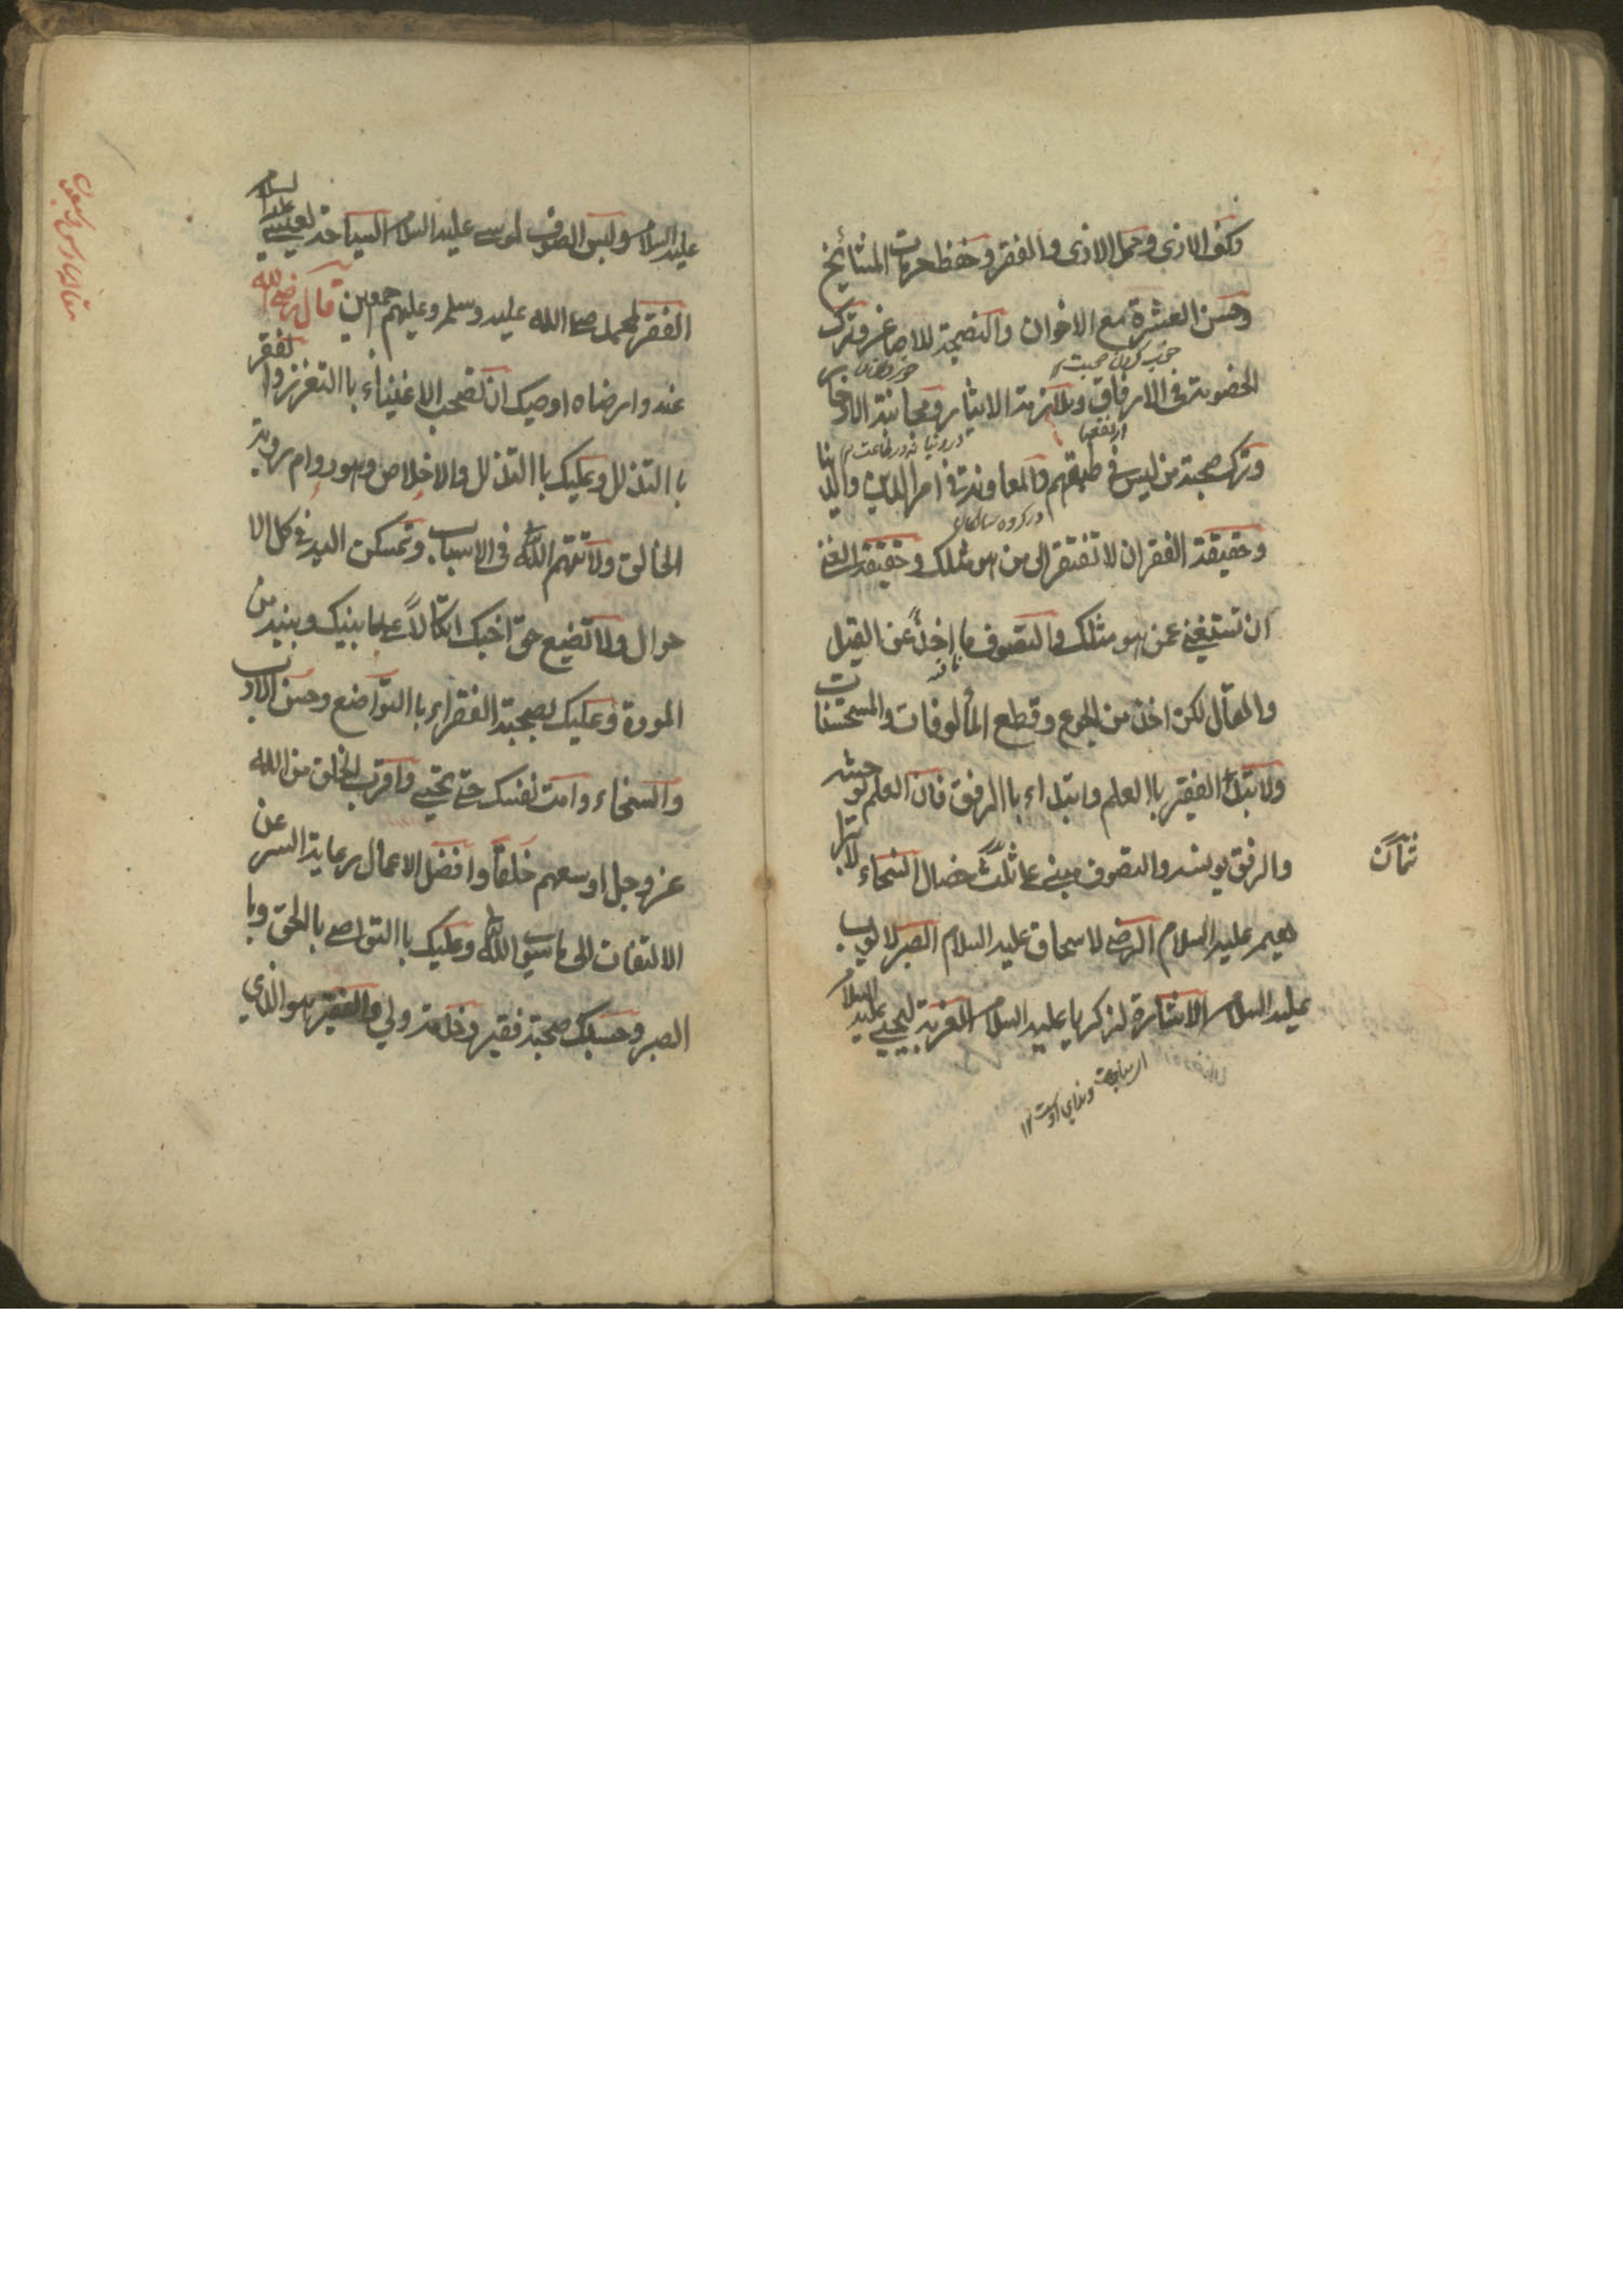 وكف الاذى وحمل الاذى والفقر وحفظ حرمات المشائخ
وحسن العشرة مع الاخوان والنصيحة للاصاغر وترك
الخصومة فى الارفاق وملازمة الايثار ومجانبة الادخار
وترك صحبة من ليس فى طبقتهم والمعاونة فى امر الدين والدنيا
وحقيقة الفقر ان لا تفتقر الى من هو مثلك وحقيقة الغنى
ان تستغني عمن هو مثلك والتصوف ما اخذ عن القيل
والقال لكن اخذ من الجوع وقطع المألوفات والمستحسنات
ولا تبدأ الفقير باالعلم وابتداءه باالرفق فان العلم يوحشه
والرفق يونسه والتصوف مبني على ثلث خصال السخاء لابرا
هيم عليه السلام الرضى لاسحاق عليه السلام الصبر لايوب
عليه السلام الاشارة لزكريا عليه السلام الغربة ليحيى عليه السلام
ثمان
عليه السلام ولبس الصوف لموسى عليه السلام السياحة لعيسى عليه السلام
الفقر لمحمد صلى الله عليه وسلم وعليهم اجمعين قال رضي الله
عنه وارضاه اوصيك ان تصحب الاغنياء باالتعزز والفقراء
باالتذلل وعليك باالتذلل والاخلاص وهو دوام رؤية
الخالق ولا تتهم الله فى الاسباب وتمسكن اليه فى كل الا
حوال ولا تضيع حق اخيك اتكالا على ما بينك وبينه من
المودة وعليك بصحبة الفقراء باالتواضع وحسن الادب
والسخاء وامت نفسك حتى تحيى واقرب الخلق من الله
عز وجل اوسعهم خلقا وافضل الاعمال رعاية السر عن
الالتفات الى ما سوى الله وعليك باالتواصي بالحق وبا
الصبر وحسبك صحبة فقير وخدمة ولي والفقير هو الذي